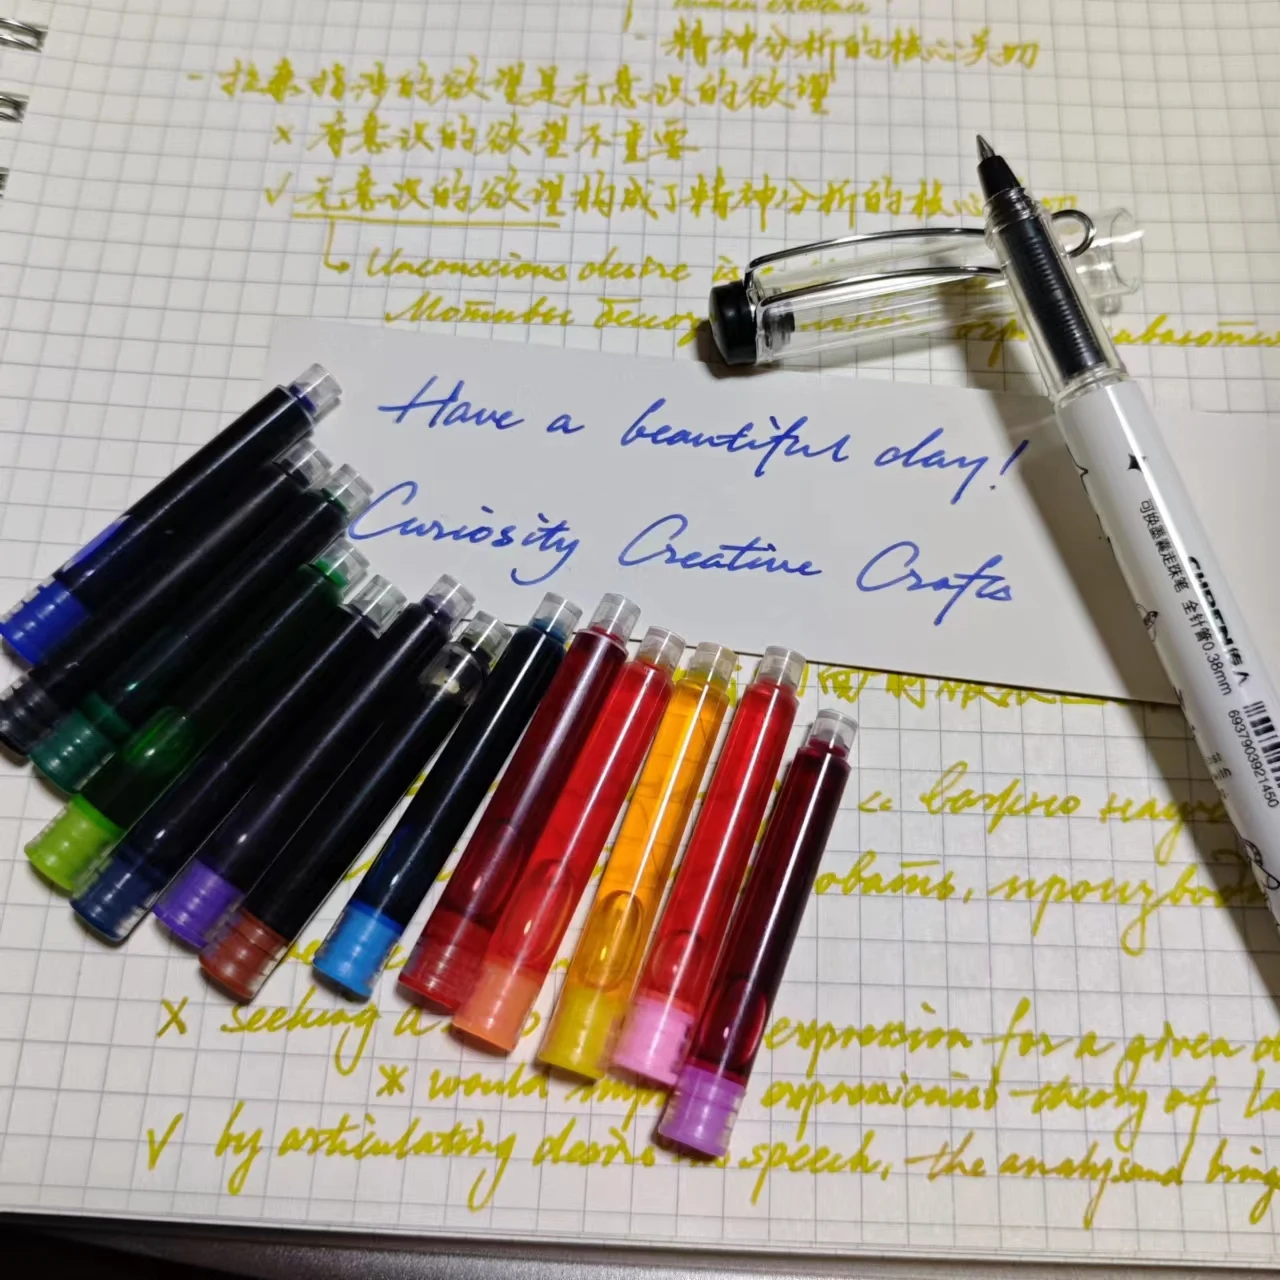 human existence
- 精神分析的核心关切
- 拉康指涉的欲望是无意识的欲望
× 有意识的欲望不重要
√ 无意识的欲望构成了精神分析的核心 切
Unconscious desire is
Мотивы бессоз
Have a beautiful day!
Curiosity Creative Crafts
可换墨囊走珠笔 全针管0.38mm
6937903921450
важно науч
овать, производ
× seeking a expression for a given
* would imp expressionist theory of la
√ by articulating desire speech, the analysand bring